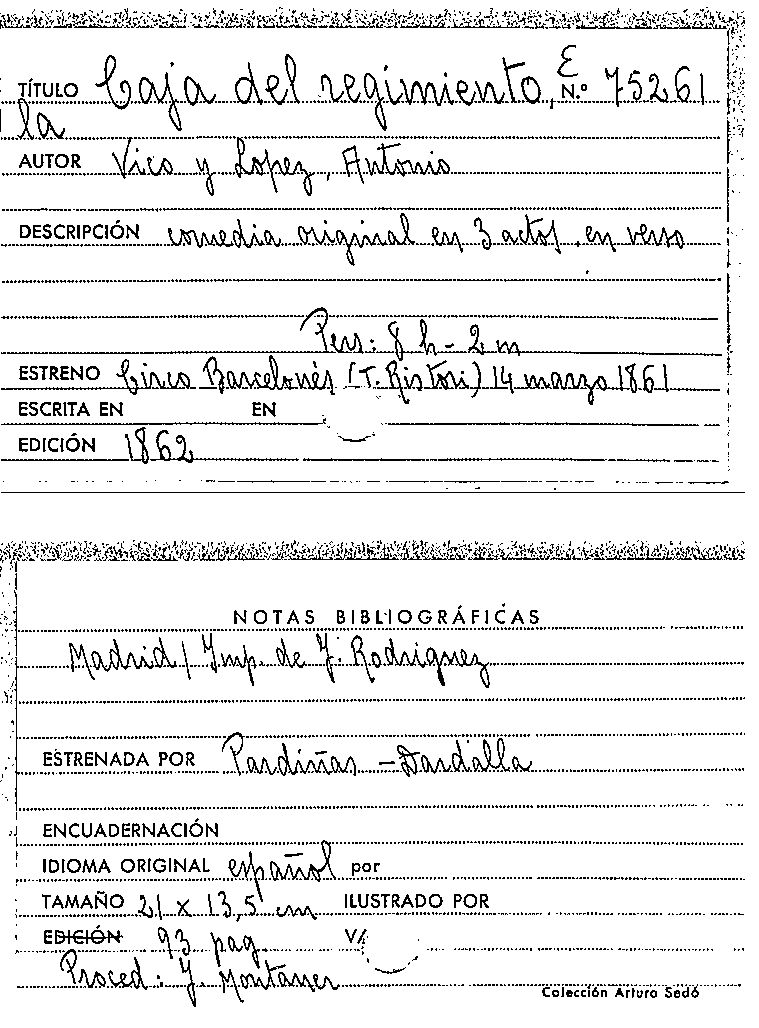 TÍTULO Caja del regimiento, E N.º 75261
la
AUTOR Vico y Lopez, Antonio
DESCRIPCIÓN comedia original en 3 actos, en verso
Pers: 8 h - 2 m
ESTRENO Circo Barcelonés (T. Ristori) 14 marzo 1861
ESCRITA EN EN
EDICIÓN 1862
NOTAS BIBLIOGRÁFICAS
Madrid / Imp. de J. Rodriguez
ESTRENADA POR Pardiñas - Dardalla
ENCUADERNACIÓN
IDIOMA ORIGINAL español por
TAMAÑO 21 x 13,5 cm ILUSTRADO POR
EDICIÓN 93 pag. V/
Proced: J. Montaner
Colección Arturo Sedó